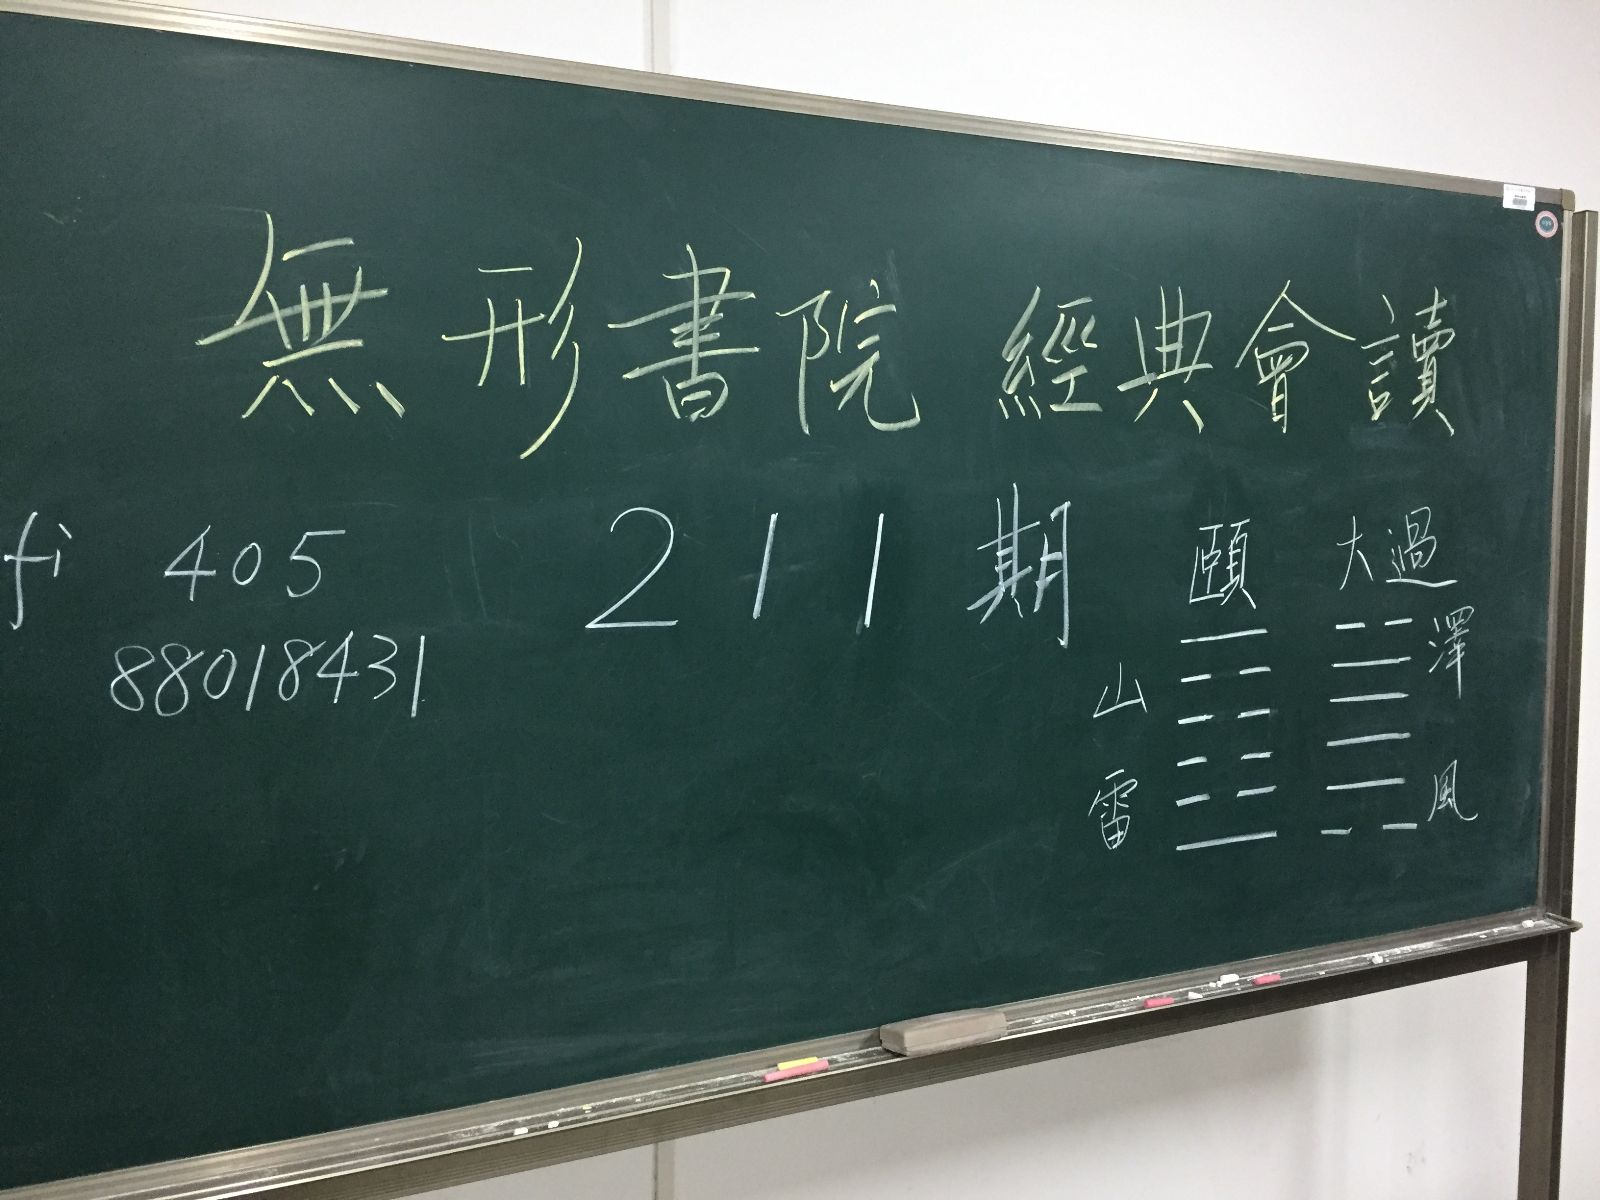 無形書院 經典會讀
fi 405
88018431
211期
頤 大過
山 澤
雷 風